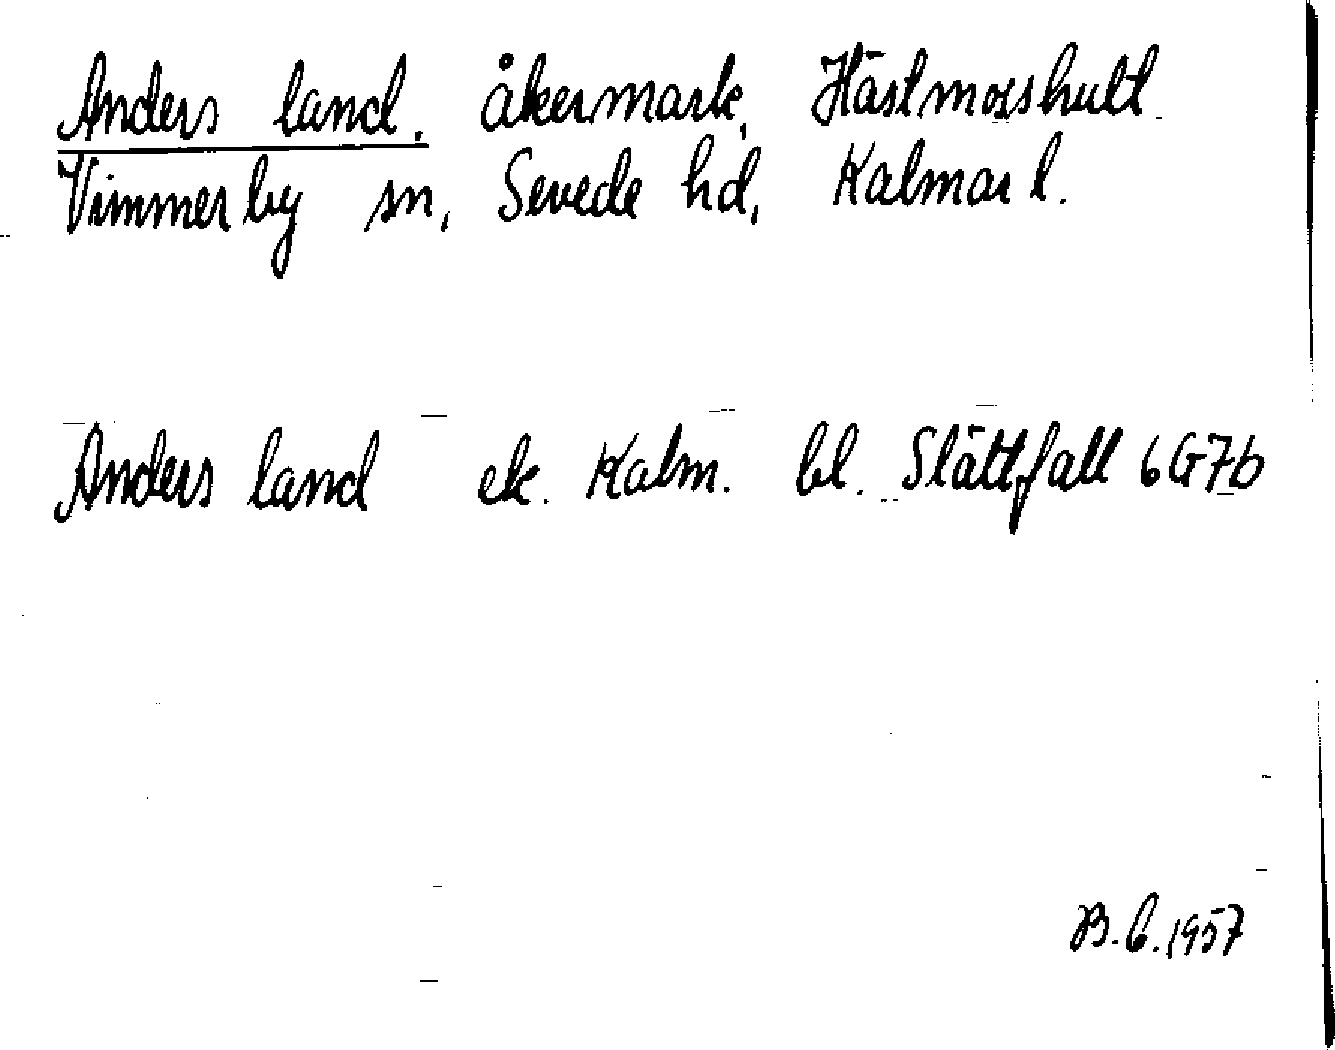 Anders land. åkermark, Hästmosshult
Vimmerby sn, Sevede hd, Kalmar l.
Anders land ek. Kalm. bl. Slättfall 6G7b
B.C.1957